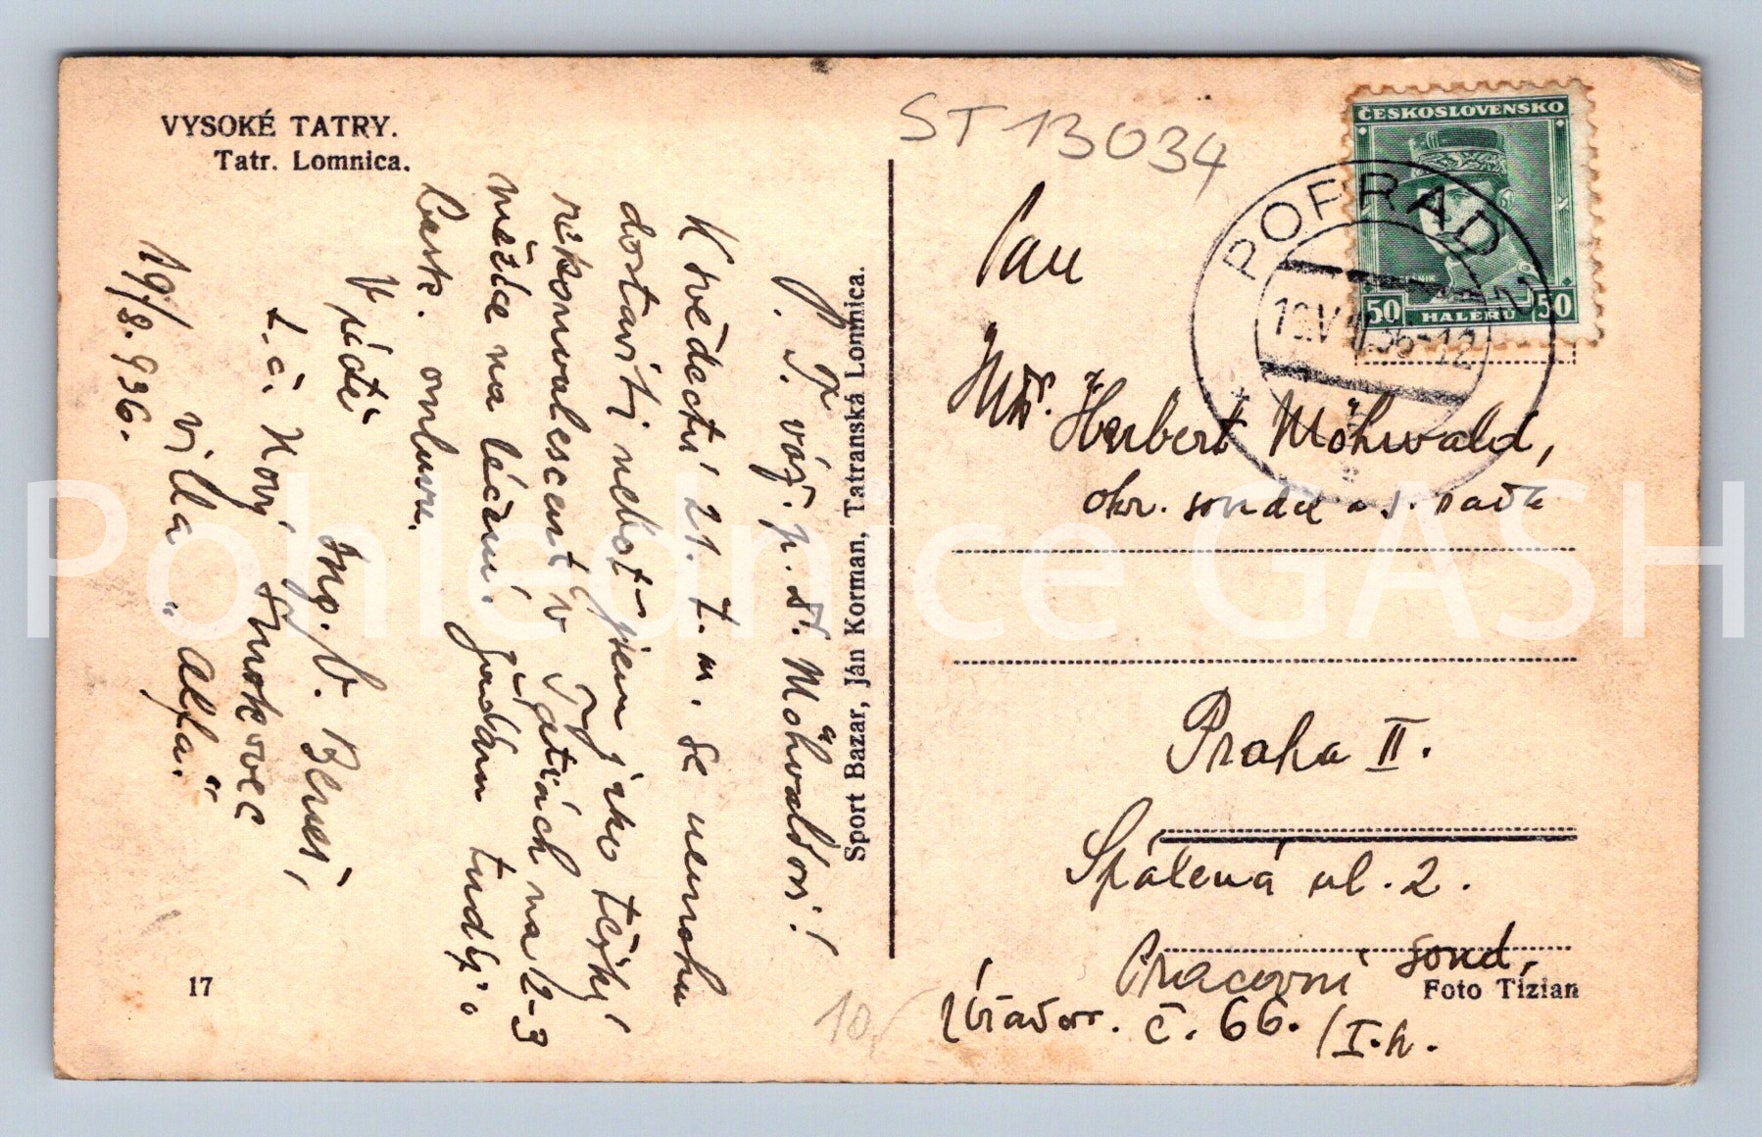 VYSOKÉ TATRY.
Tatr. Lomnica.
P. T.
váž. p. st. Möhwaldovi!
K svědectví 21. t. m. se nemohu
dostaviti neboť jsem jako těžký
rekonvalescent v Tatrách na 2-3
měsíce na léčení. Žádám tudíž o
lask. omluvu.
V úctě
Ing. V. Beneš,
t. č. Nový Smokovec
villa „Alfa."
19/8. 936.
17
Sport Bazar, Ján Korman, Tatranská Lomnica.
ST 13034
ČESKOSLOVENSKO
50 HALERU 50
POPRAD 2
19.VIII.36-12
Pan
JUDr. Herbert Möhwald,
okr. soudce a s. rada
Praha II.
Spálená ul. 2.
Pracovní soud,
Úřadov. č. 66. /I.h.
Foto Tizian
10,-
Pohlednice GASH